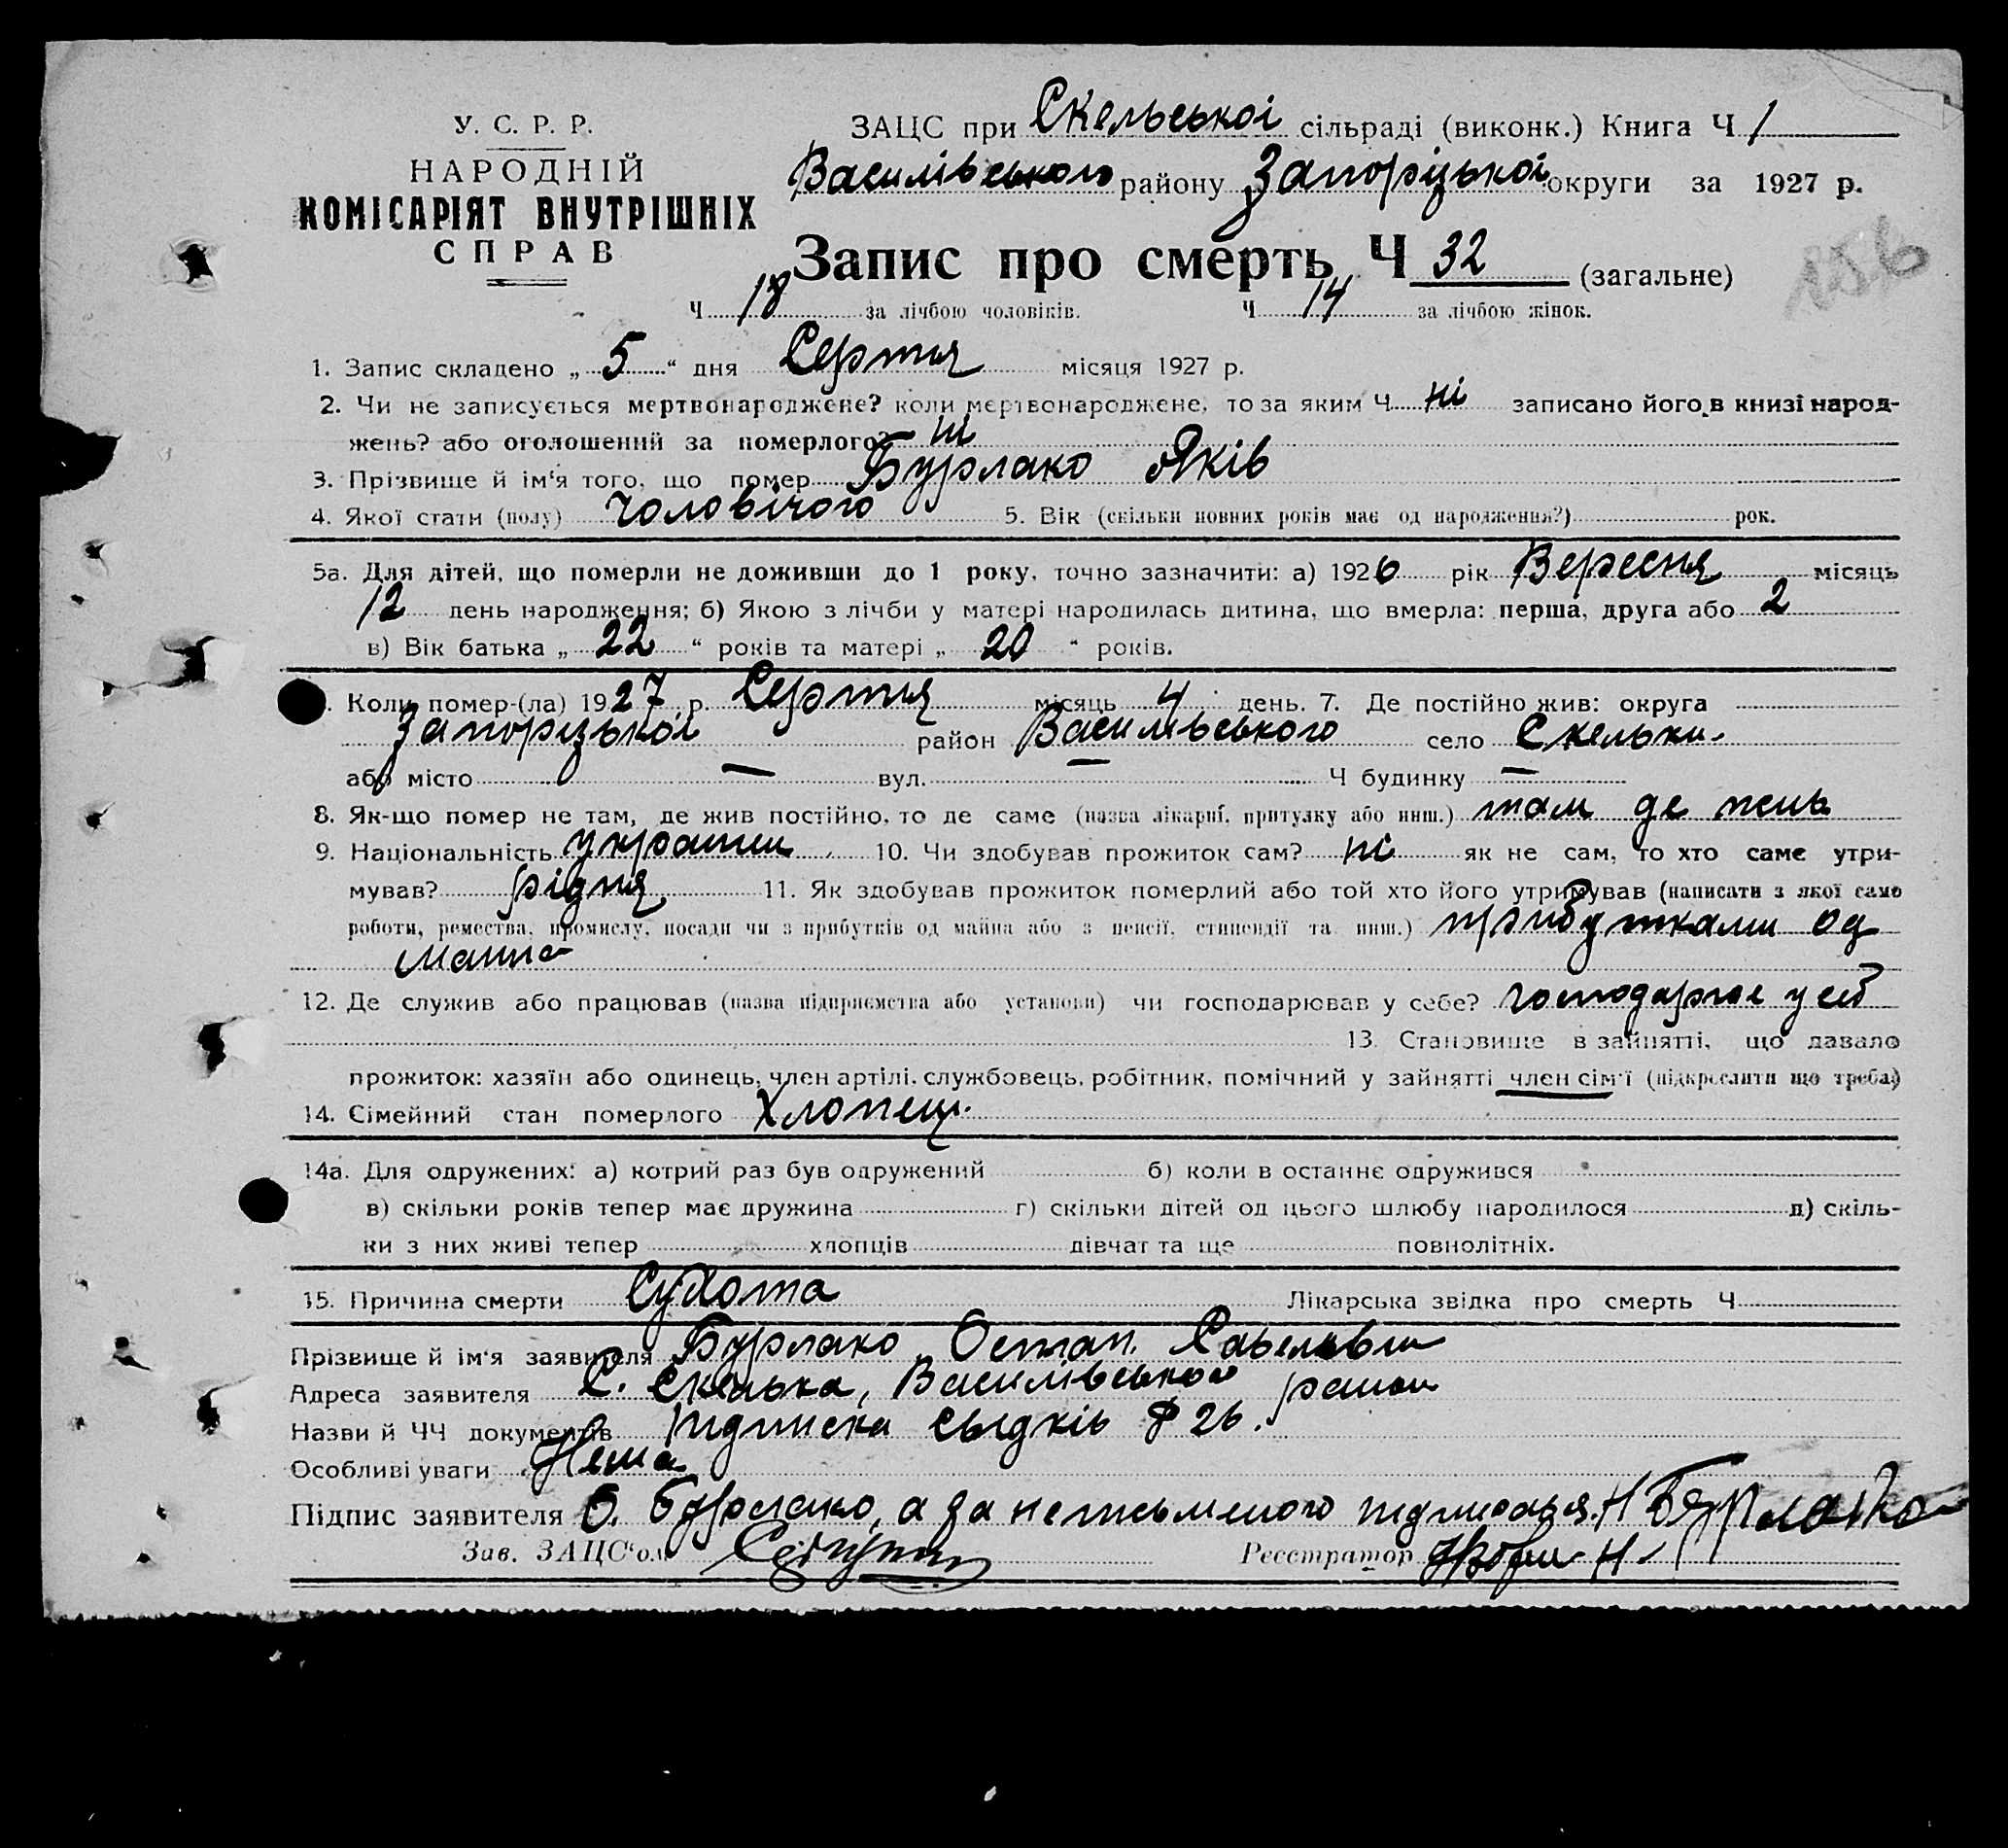 У. С. Р. Р.
НАРОДНІЙ
КОМІСАРІЯТ ВНУТРІШНІХ
СПРАВ
ЗАЦС при Скельської сільраді (виконк.) Книга Ч 1
Василівського району Запоріцької округи за 1927 р.
Запис про смерть Ч 32 (загальне)
156
Ч 18 за лічбою чоловіків. Ч 14 за лічбою жінок.
1. Запис складено „ 5 “ дня Серпня місяця 1927 р.
2. Чи не записується мертвонароджене? коли мертвонароджене, то за яким Ч ні записано його в книзі народ-
жень? або оголошений за померлого? ні
3. Прізвище й ім‘я того, що помер Бурлако Яків
4. Якої стати (полу) Чоловічого 5. Вік (скільки повних років має од народження?) рок.
5а. Для дітей, що померли не доживши до 1 року, точно зазначити: а) 1926 рік Вересня місяць
12 день народження; б) Якою з лічби у матері народилась дитина, що вмерла: перша, друга або 2
в) Вік батька „ 22 “ років та матері „ 20 “ років.
Коли помер-(ла) 1927 р. Серпня місяць 4 день. 7. Де постійно жив: округа
Запоріцької район Василівського село Скельки.
або місто — вул. — Ч будинку —
8. Як-що помер не там, де жив постійно, то де саме (назва лікарні, притулку або инш.) там де
9. Національність 10. Чи здобував прожиток сам? ні як не сам, то хто саме утри-
мував? рідня 11. Як здобував прожиток померлий або той хто його утримував (написати з якої само
роботи, ремества, промислу, посади чи з прибутків од майна або з пенсії, стипендії та инш.) прибутками од
майна
12. Де служив або працював (назва підприємства або установи) чи господарював у себе? господарює у себ
13. Становище в зайнятті, що давало
прожиток: хазяїн або одинець, член артілі, службовець, робітник, помічний у зайнятті член сім‘ї (підкреслити що треба)
14. Сімейний стан померлого Хлопець.
14а. Для одружених: а) котрий раз був одружений б) коли в останнє одружився
в) скільки років тепер має дружина г) скільки дітей од цього шлюбу народилося д) скіль-
ки з них живі тепер хлопців дівчат та ще повнолітніх.
15. Причина смерти Сухота Лікарська звідка про смерть Ч
Прізвище й ім‘я заявителя Бурлако Остап
Адреса заявителя С. Скелька, Василівського району
Назви й ЧЧ документів Підписка свідків Ф 26.
Особливі уваги Нема
Підпис заявителя О. Бурлако, а за неписьменого підписався Н Бурлако
Зав. ЗАЦС‘ом Реєстратор